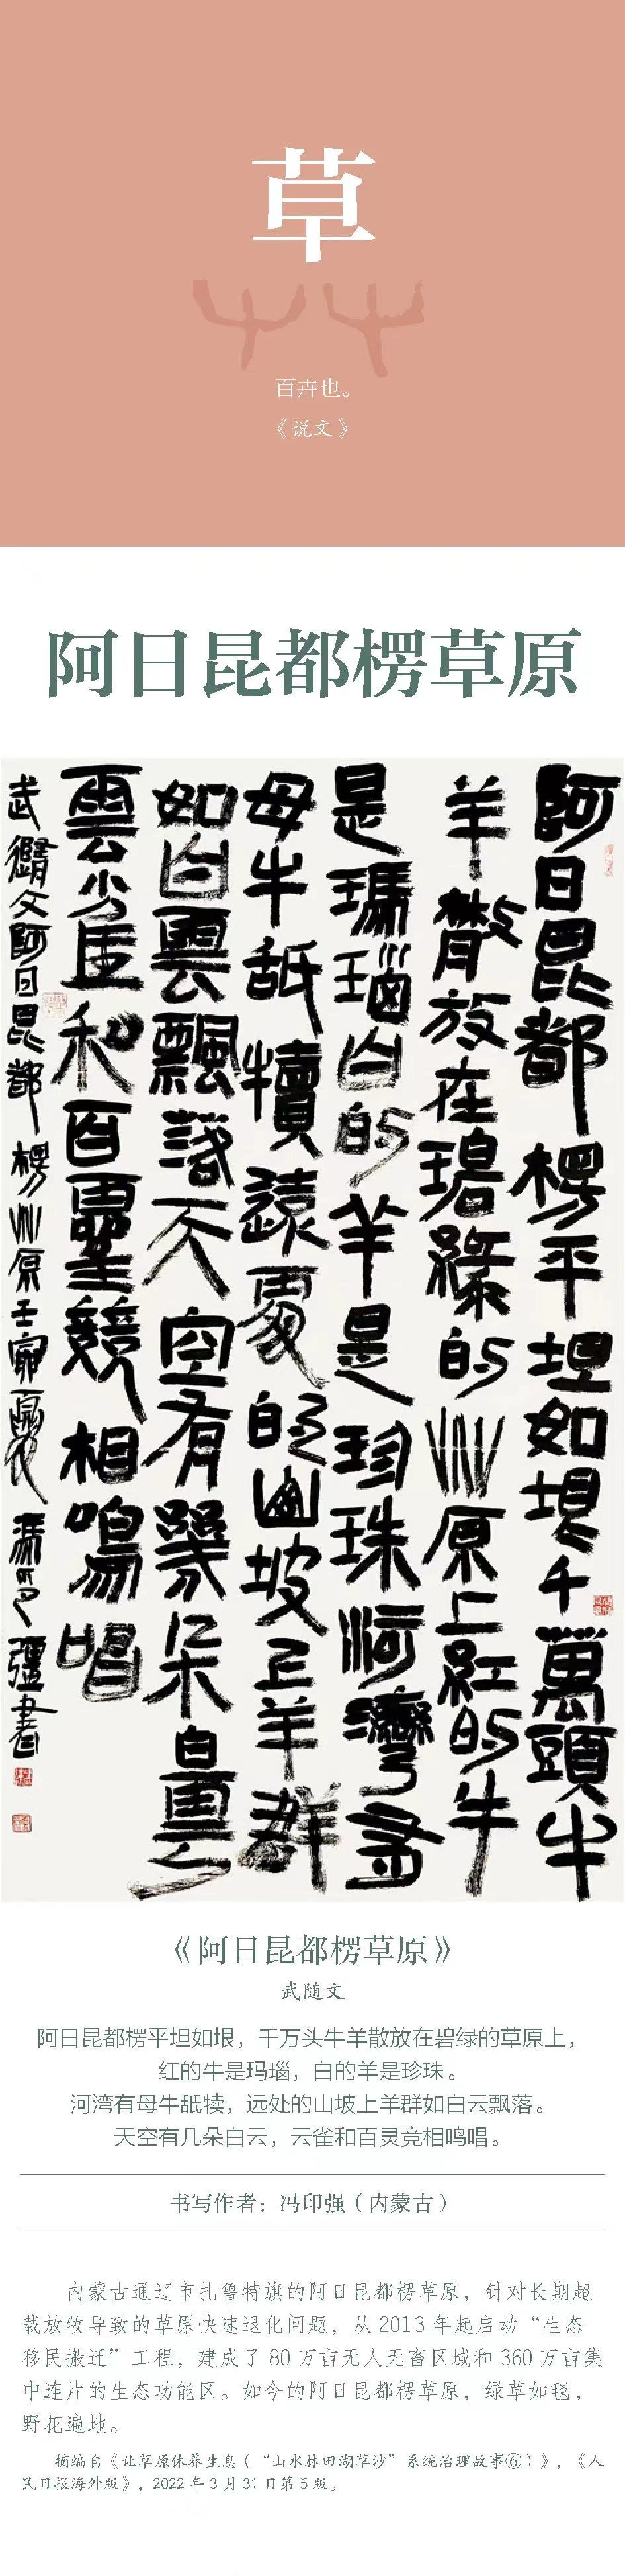 草
百卉也。
《说文》
阿日昆都楞草原
阿日昆都楞平坦如垠千萬頭牛
羊散放在碧綠的艸原上紅的牛
是瑪瑙白的羊是珍珠河灣有
母牛舐犢遠處的山坡上羊群
如白雲飄落天空有幾朵白雲
雲雀和百靈競相鳴唱
武隨文阿日昆都楞艸原壬寅夏 馮印彊書
《阿日昆都楞草原》
武随文
阿日昆都楞平坦如垠，千万头牛羊散放在碧绿的草原上，
红的牛是玛瑙，白的羊是珍珠。
河湾有母牛舐犊，远处的山坡上羊群如白云飘落。
天空有几朵白云，云雀和百灵竞相鸣唱。
书写作者：冯印强（内蒙古）
内蒙古通辽市扎鲁特旗的阿日昆都楞草原，针对长期超
载放牧导致的草原快速退化问题，从 2013 年起启动“生态
移民搬迁”工程，建成了 80 万亩无人无畜区域和 360 万亩集
中连片的生态功能区。如今的阿日昆都楞草原，绿草如毯，
野花遍地。
摘编自《让草原休养生息（“山水林田湖草沙”系统治理故事⑥）》，《人
民日报海外版》，2022 年 3 月 31 日第 5 版。